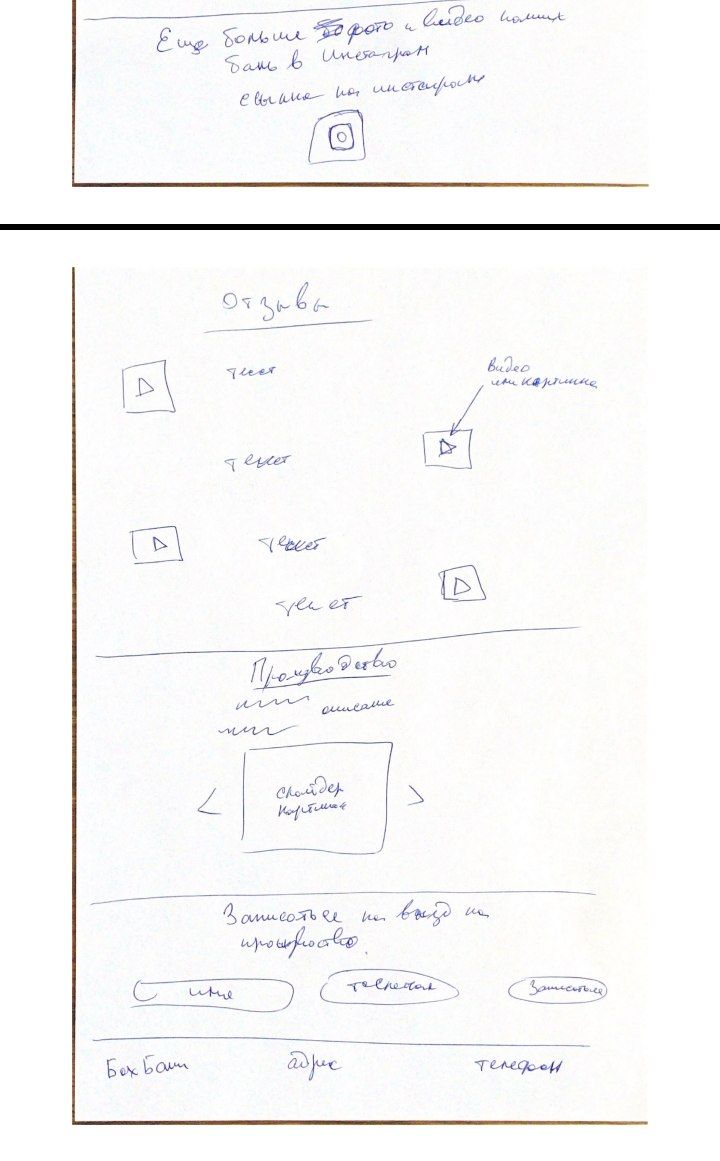 Еще больше фото и видео наших
бань в Инстаграм
ссылка на инстаграм
Отзывы
текст
Видео
или картинка
текст
текст
текст
Производство
описание
слайдер
картинок
Записаться на въезд на
производство.
имя
телефон
Записаться
БохБани
адрес
телефон